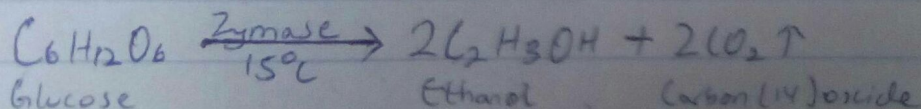 C₆H₁₂O₆ Zymase 15°C → 2C₂H₃OH + 2CO₂↑
Glucose Ethanol Carbon(IV)oxide